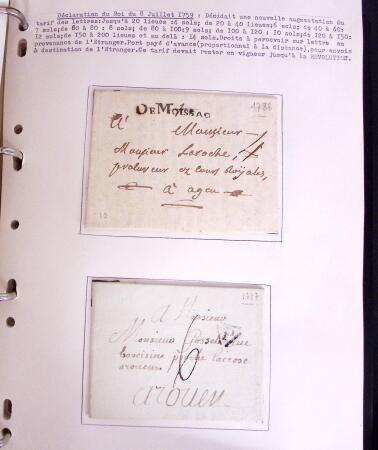 Déclaration du Roi du 8 Juillet 1759 : Décidait une nouvelle augmentation du
tarif des lettres:Jusqu'à 20 lieues :4 sols; de 20 à 40 lieues;6 sols; de 40 à 60:
7 sols;de 60 à 80 : 8 sols; de 80 à 100:9 sols; de 100 à 120 : 10 sols;de 120 à 150:
12 sols;de 150 à 200 lieues et au delà : 14 sols.Droits à percevoir sur lettre en
provenance de l'Etranger.Port payé d'avance(proportionnel à la distance),pour envois
à destination de l'Etranger.Ce tarif devait rester en vigueur jusqu'à la REVOLUTION.
DE MOISSAC
1788
à Monsieur
Monsieur Laroche,
procureur ez cours Royales,
à agen
10
1787
A Monsieur
Monsieur
proche
6
arouen